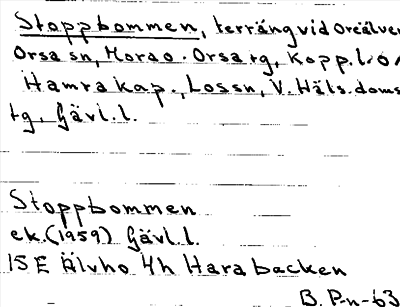 Stoppbommen, terräng vid Oreälve
Orsa sn, Mora o. Orsa tg, Kopp. l. o
Hamra kap., Los sn, V. Häls. doms
tg, Gävl. l.
Stoppbommen
ek. (1959) Gävl. l.
15 E Älvho 4h Harabacken
B. P-n-63